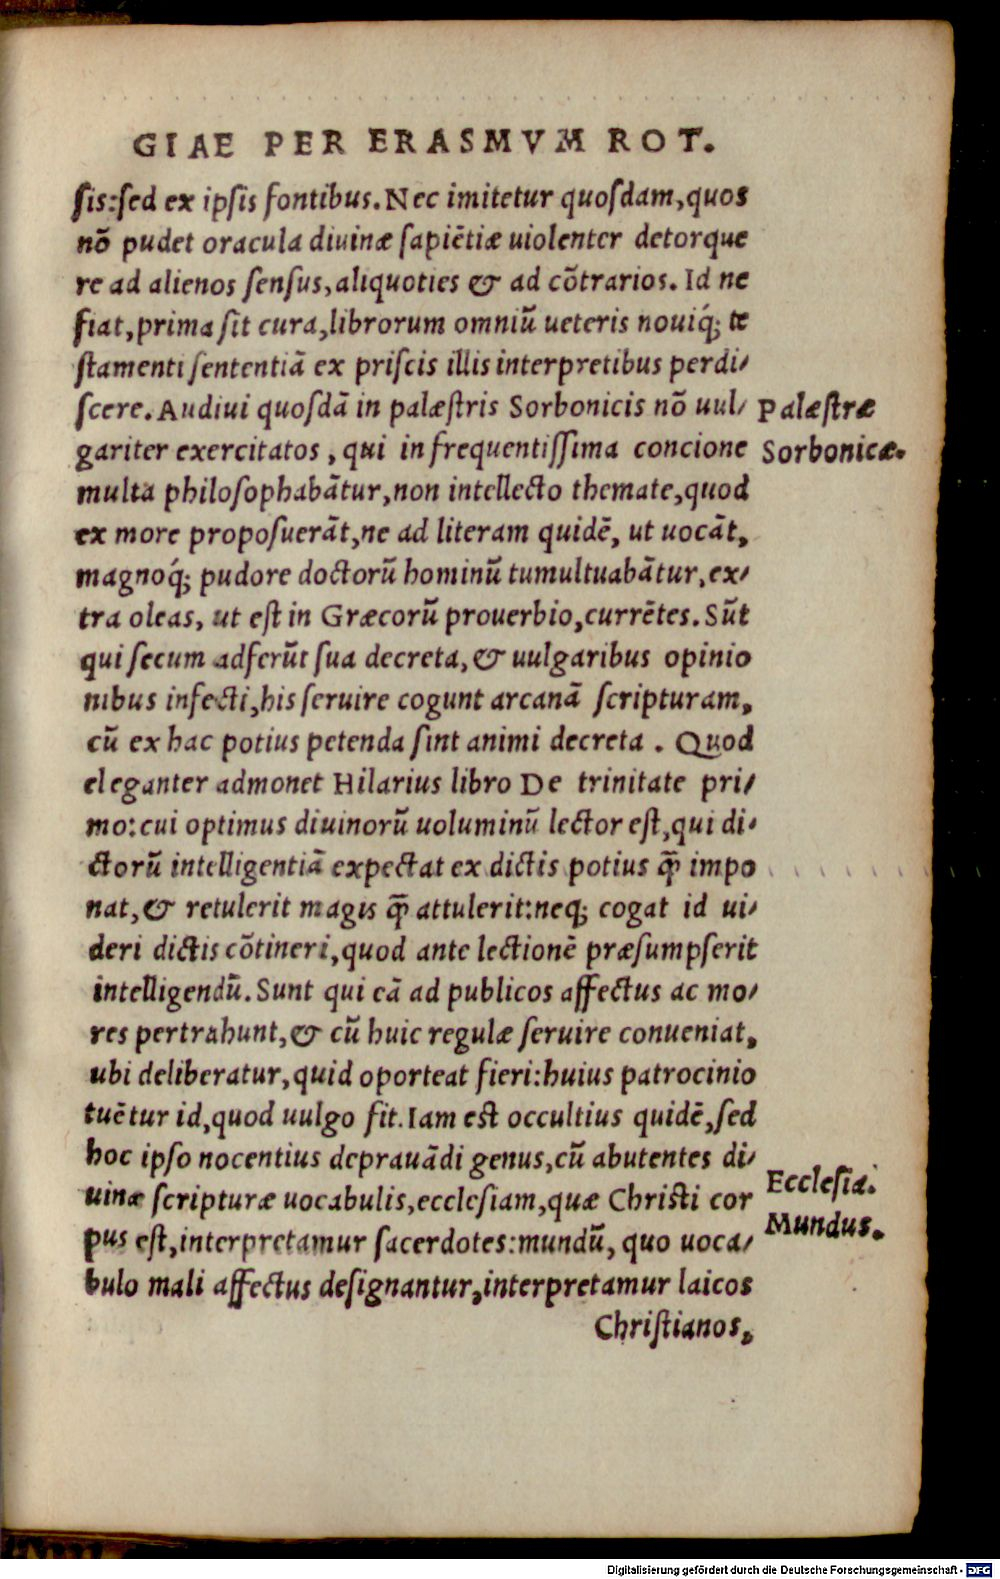 GIAE PER ERASMVM ROT.
sis:sed ex ipsis fontibus. Nec imitetur quosdam, quos
nō pudet oracula diuinæ sapiētiæ uiolenter detorque
re ad alienos sensus, aliquoties & ad cōtrarios. Id ne
fiat, prima sit cura, librorum omniū ueteris nouiq́; te
stamenti sententiā ex priscis illis interpretibus perdi/
scere. Audiui quosdā in palæstris Sorbonicis nō uul/
Palæstræ
gariter exercitatos, qui in frequentissima concione
Sorbonicæ.
multa philosophabātur, non intellecto themate, quod
ex more proposuerāt, ne ad literam quidē, ut uocāt,
magnoq́; pudore doctorū hominū tumultuabātur, ex/
tra oleas, ut est in Græcorū prouerbio, currētes. Sūt
qui secum adferūt sua decreta, & uulgaribus opinio
nibus infecti, his seruire cogunt arcanā scripturam,
cū ex hac potius petenda sint animi decreta. Quod
eleganter admonet Hilarius libro De trinitate pri/
mo: cui optimus diuinorū uoluminū lector est, qui di/
ctorū intelligentiā expectat ex dictis potius q̄ impo
nat, & retulerit magis q̄ attulerit: neq; cogat id ui/
deri dictis cōtineri, quod ante lectionē præsumpserit
intelligendū. Sunt qui eā ad publicos affectus ac mo/
res pertrahunt, & cū huic regulæ seruire conueniat,
ubi deliberatur, quid oporteat fieri: huius patrocinio
tuētur id, quod uulgo fit. Iam est occultius quidē, sed
hoc ipso nocentius deprauādi genus, cū abutentes di/
Ecclesia.
uinæ scripturæ uocabulis, ecclesiam, quæ Christi cor
Mundus.
pus est, interpretamur sacerdotes: mundū, quo uoca/
bulo mali affectus designantur, interpretamur laicos
Christianos,
Digitalisierung gefördert durch die Deutsche Forschungsgemeinschaft - DFG